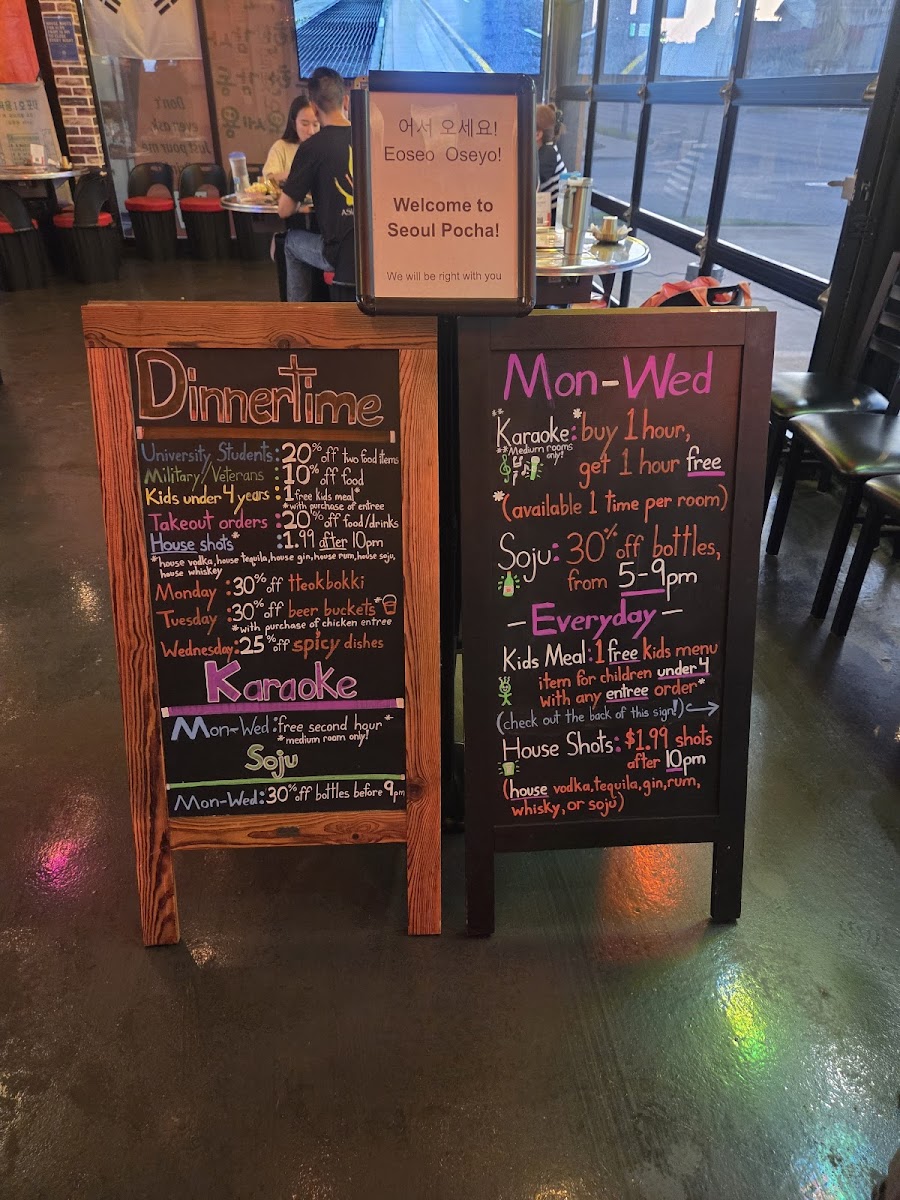 어서 오세요!
Eoseo Oseyo!
Welcome to
Seoul Pocha!
We will be right with you
Don't
ever ask
Just pour me
Dinnertime
University Students: 20% off two food items
Military/Veterans: 10% off food
Kids under 4 years: 1 free kids meal*
*with purchase of entree
Takeout orders: 20% off food/drinks
House shots*: 1.99 after 10pm
*house vodka, house tequila, house gin, house rum, house soju,
house whiskey
Monday: 30% off tteokbokki
Tuesday: 30% off beer buckets*
*with purchase of chicken entree
Wednesday: 25% off spicy dishes
Karaoke
Mon-Wed: free second hour*
*medium room only!
Soju
Mon-Wed: 30% off bottles before 9pm
Mon-Wed
*Karaoke:* buy 1 hour,
**Medium rooms
only!
get 1 hour free
*(available 1 time per room)
Soju: 30% off bottles,
from 5-9pm
-Everyday-
Kids Meal: 1 free kids menu
item for children under 4
with any entree order*
(check out the back of this sign!)
House Shots: $1.99 shots
after 10pm
(house vodka, tequila, gin, rum,
whisky, or soju)